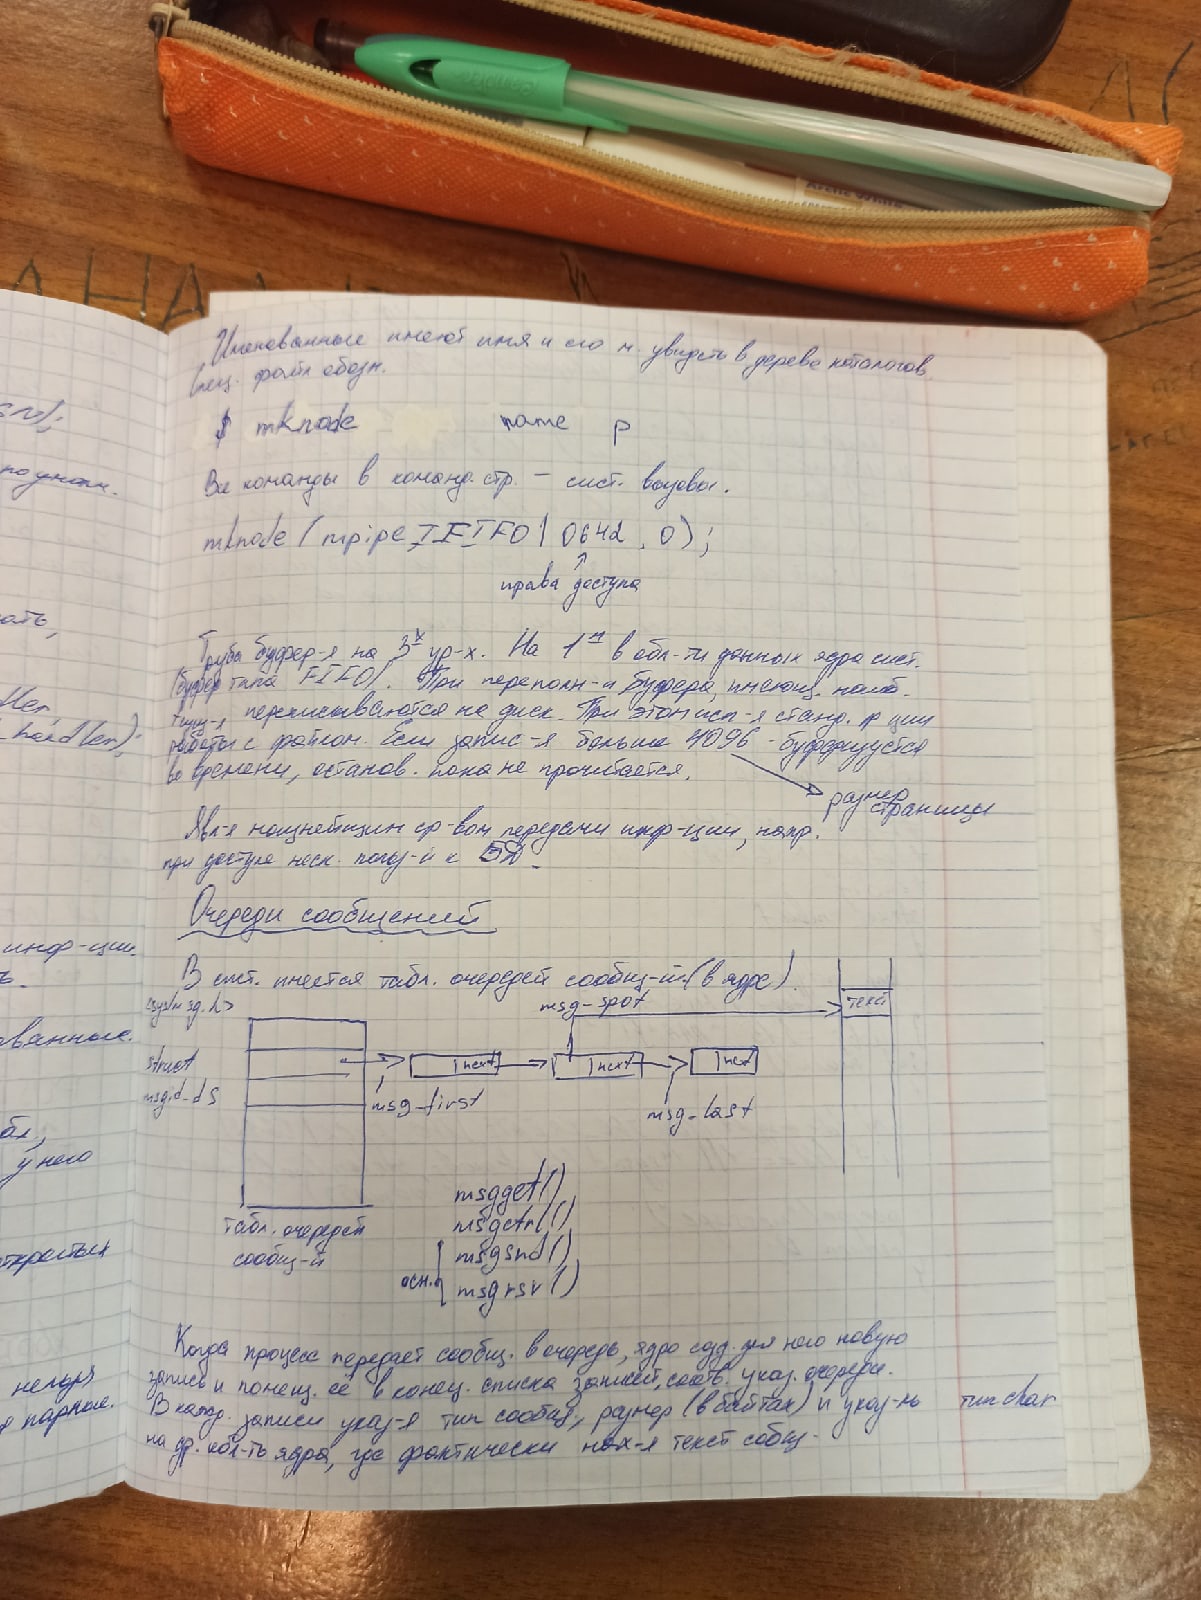 Именованные имеют имя и его м. увидеть в дереве каталогов.
спец. файл обозн.
$ mknode name p
Все команды в команд. стр. – сист. вызовы.
mknode ( mpipe IFIFO | 0642 , 0 ) ;
права доступа
Труба буфер-я на 3х ур-х. На 1м в обл-ти данных ядра сист.
(буфер типа FIFO). При переполн-и буфера, имеющ. наиб.
переписываются на диск. При этом исп-я станд. ф-ции
работы с файлом. Если запис-я больше 4096 - буферизуется
во времени, останов. пока не прочитается.
размер страницы
Явл-я мощнейшим ср-вом передачи инф-ции, напр.
при доступе неск. польз-й к БД.
Очереди сообщений
В сист. имеется табл. очередей сообщ-й (в ядре).
<sys/msg.h>
msg-spot
текст
struct
msgid-ds
next
next
next
msg-first
msg-last
табл. очередей
сообщ-й
msgget()
msgctrl()
осн.
msgsnd()
msgrsv()
Когда процесс передаёт сообщ. в очередь, ядро созд. для него новую
запись и помещ. её в конец. списка записей, соотв. указ. очереди.
В кажд. записи указ-я тип сообщ, размер (в байтах) и указ-ль тип char
на др. обл-ть ядра, где фактически нах-я текст собщ.
по умолч.
handler);
инф-ции.
у него
открытых
парные.